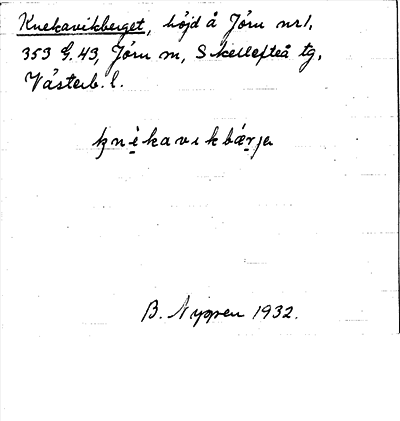 Knekavikberget, höjd å Jörn nr 1,
353 G. 43, Jörn sn, Skellefteå tg,
Västerb. l.
knèkavikbærje
B. Nygren 1932.